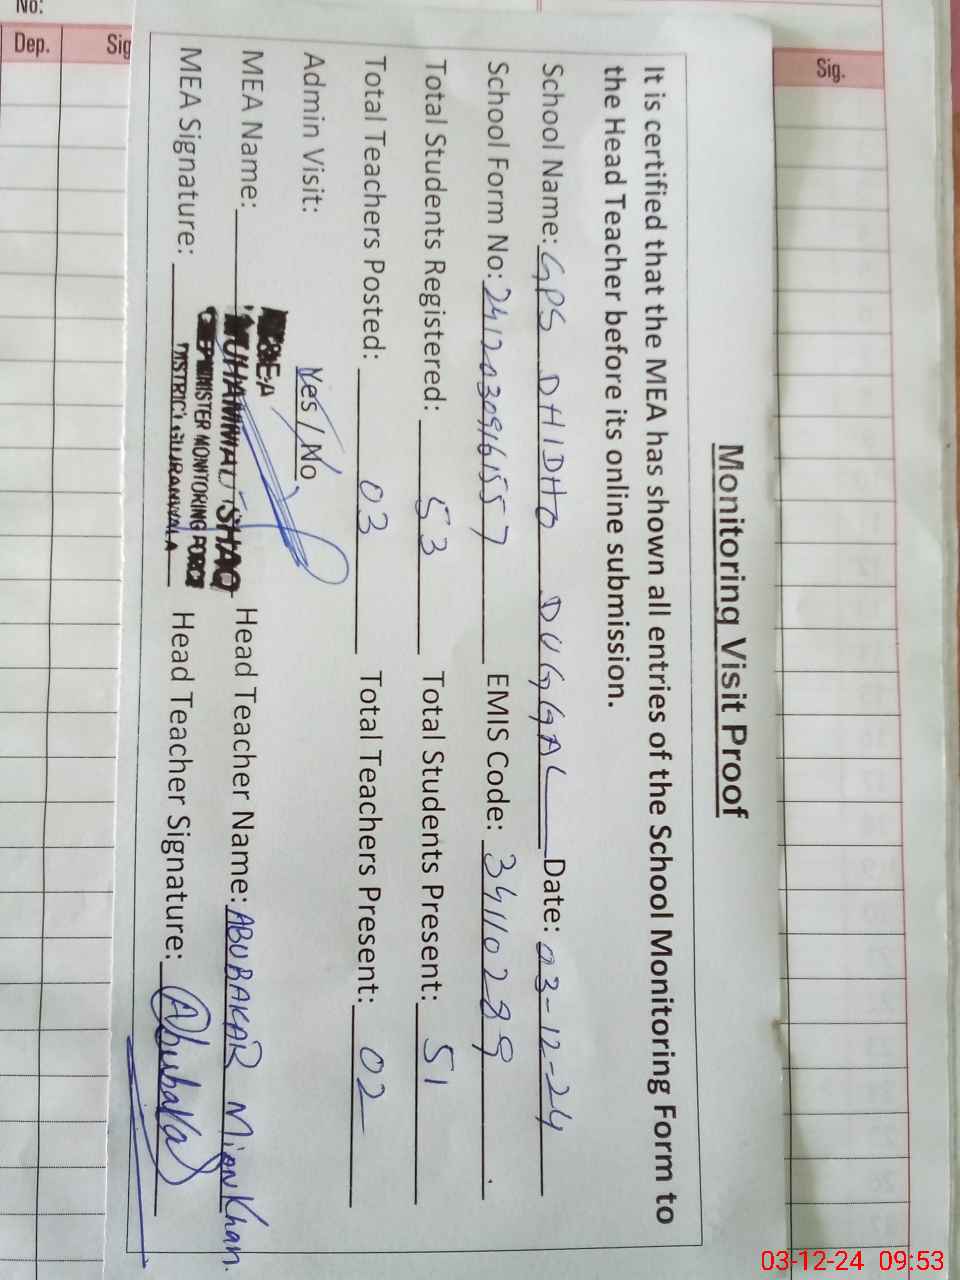 No:
Dep.
Sig
Sig.
Monitoring Visit Proof
It is certified that the MEA has shown all entries of the School Monitoring Form to
the Head Teacher before its online submission.
School Name: GPS DHIDHO DUGGAL Date: 03-12-24
School Form No: EMIS Code: 34110289
Total Students Registered: 53 Total Students Present: 51
Total Teachers Posted: 03 Total Teachers Present: 02
Admin Visit: Yes / No
MEA Name: MUHAMMAD ISHAQ Head Teacher Name: ABUBAKAR Mian Khan.
MINISTER MONITORING FORCE
MEA Signature: DISTRICT GUJRANWALA Head Teacher Signature: Abubakar
03-12-24 09:53